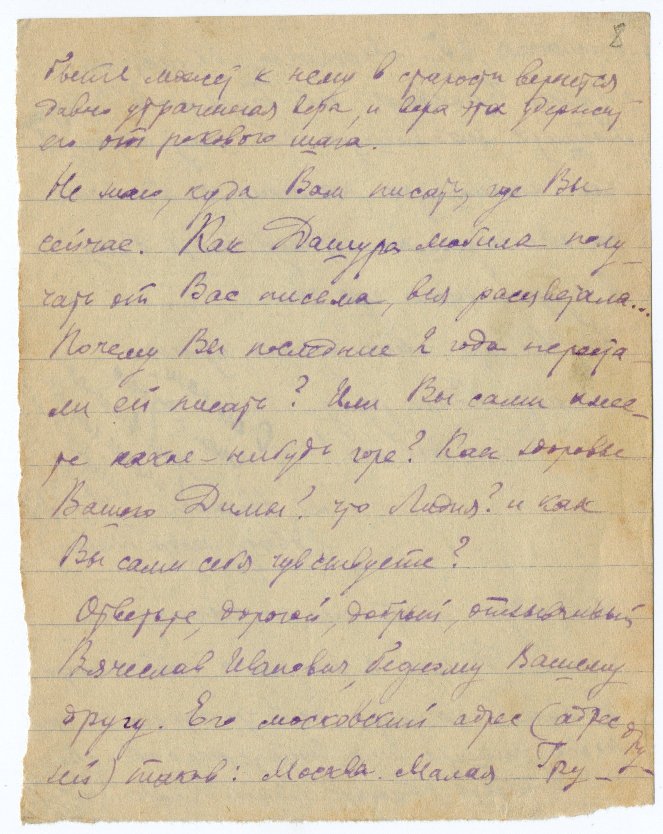 8
может к нему в старости вернется
давно утраченная вера, и вера эта удержит
его от рокового шага.
Не знаю, куда Вам писать, где Вы
сейчас. Как Дашура любила полу-
чать от Вас письма, вся расцветала...
Почему Вы последние 2 года переста-
ли ей писать? Или Вы сами имее-
те какое-нибудь горе? Как здоровье
Вашего Димы? что Лидия? и как
Вы сами себя чувствуете?
Ответьте, дорогой, добрый, отзывчивый
Вячеслав Иванович, бедному Вашему
другу. Его московский адрес (адрес дру-
зей) таков: Москва. Малая Гру-